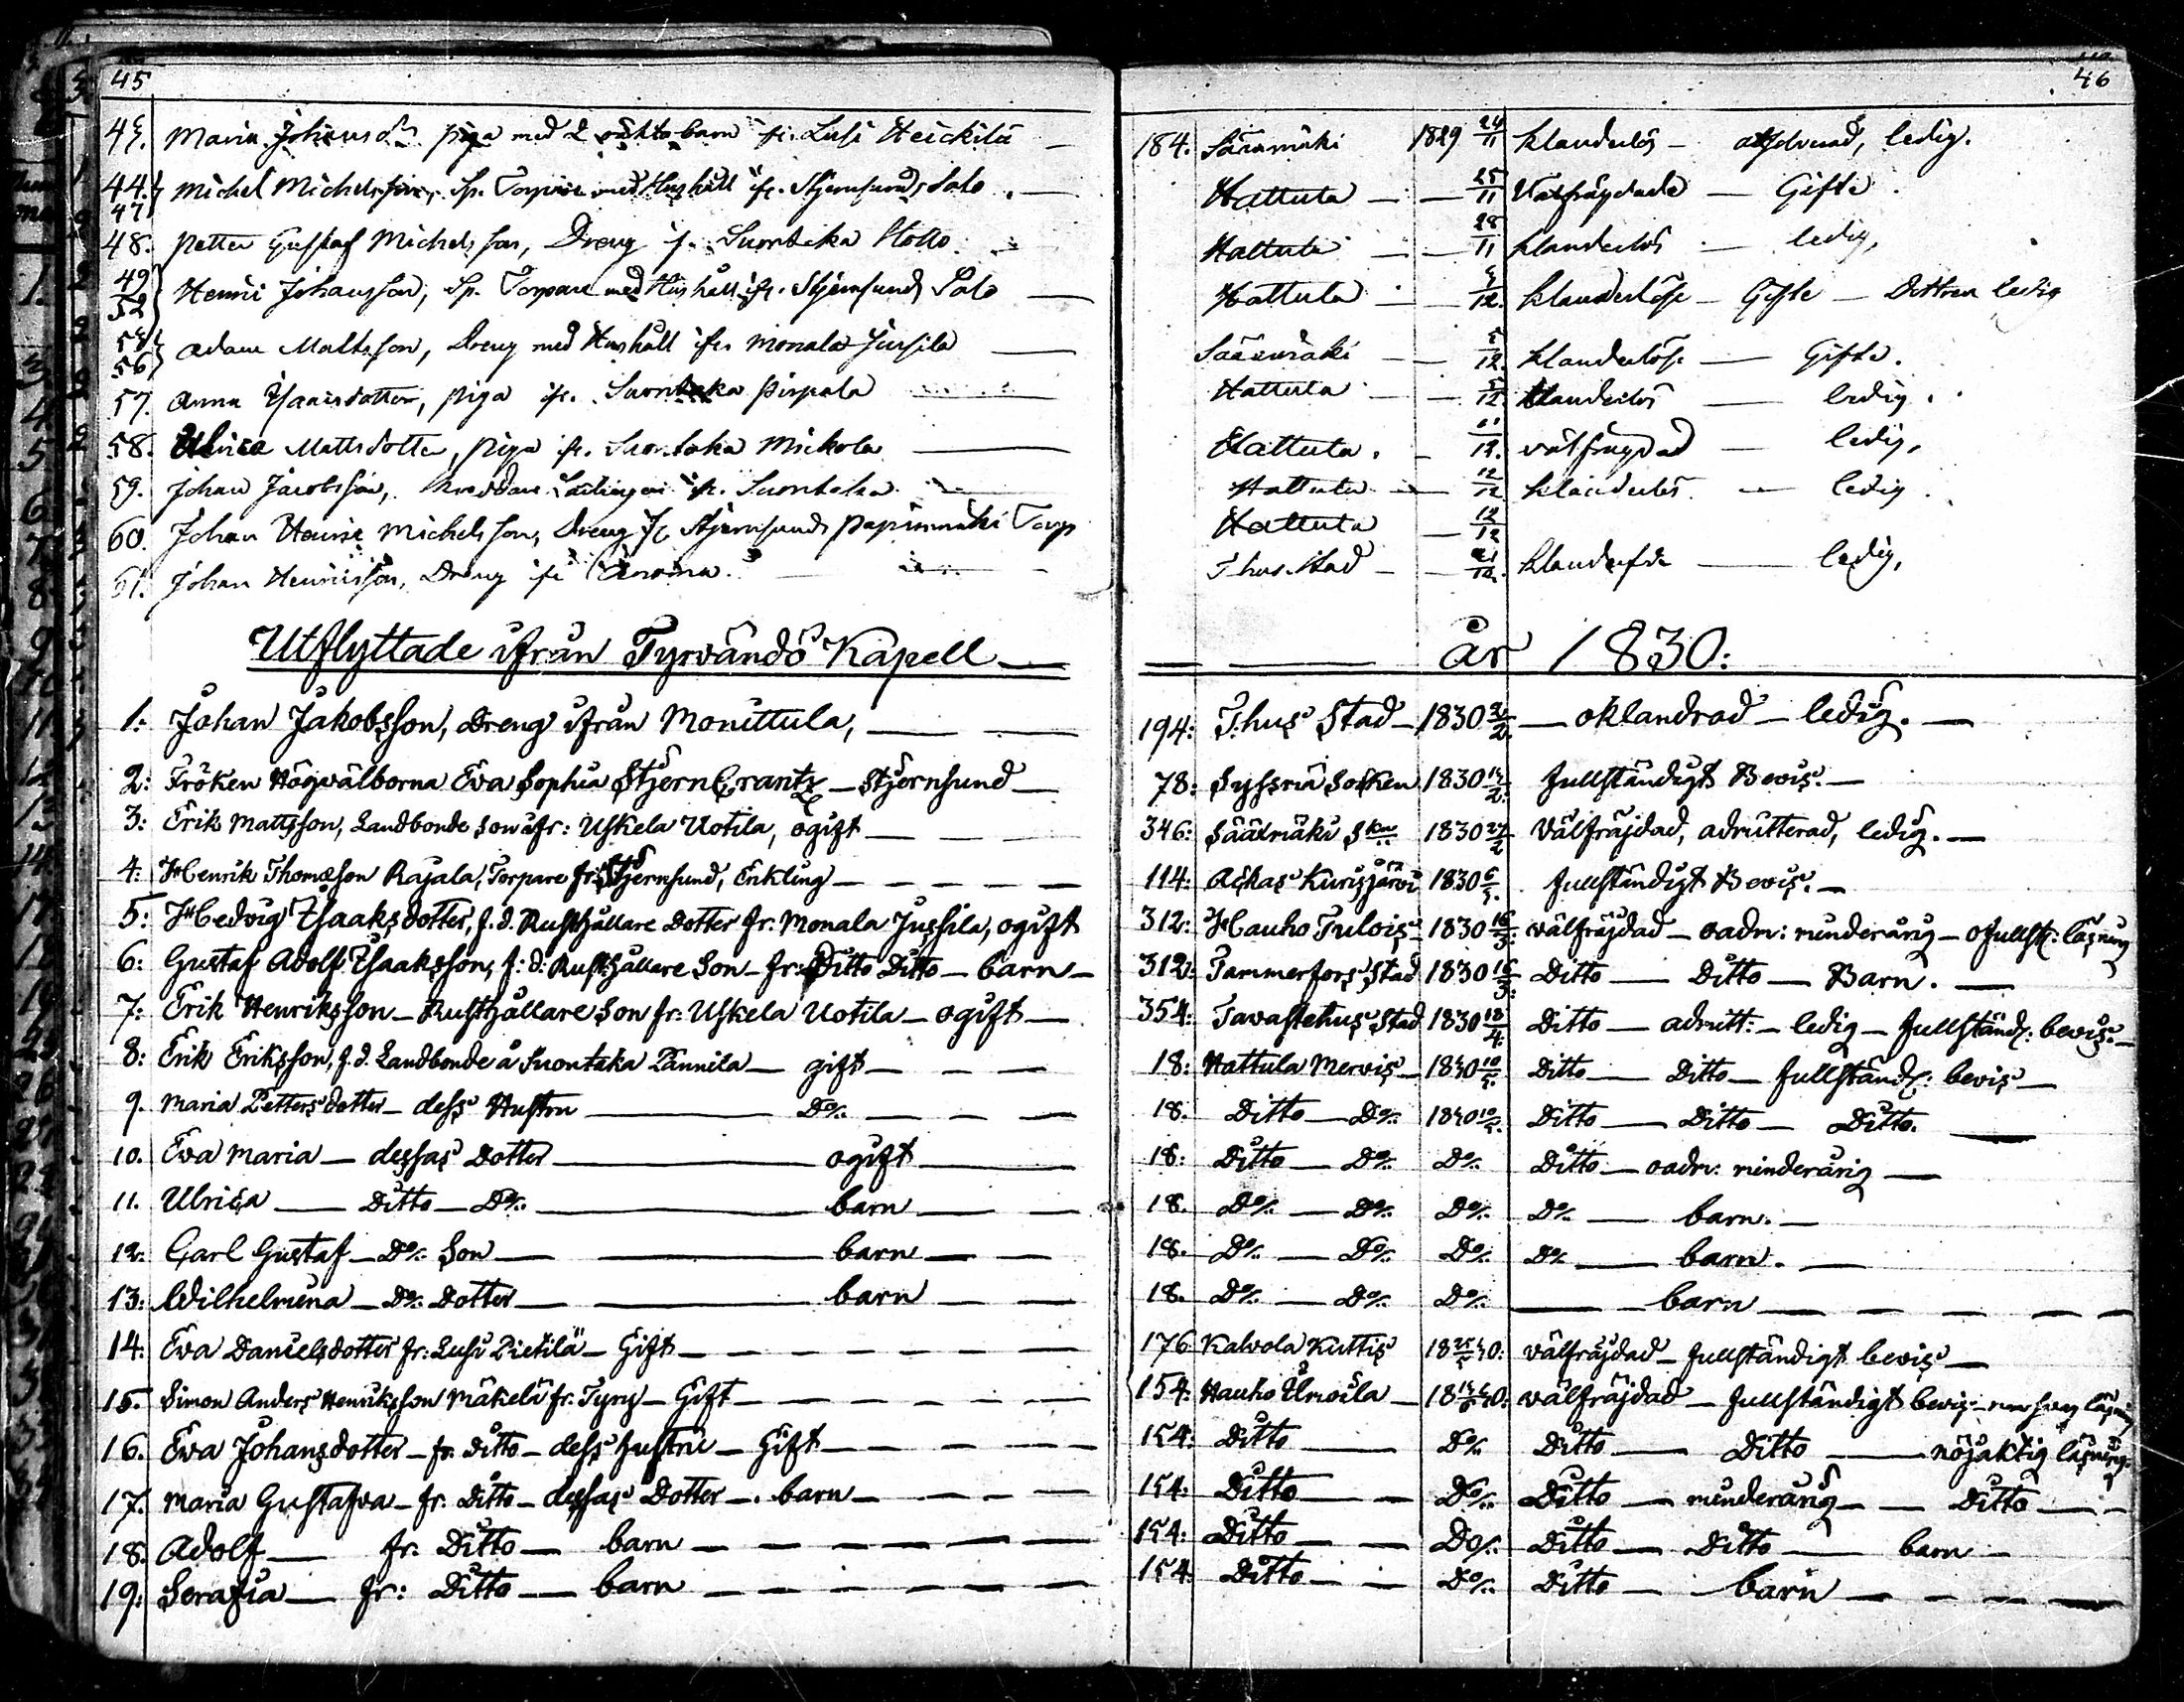 45
43. Maria Johansdr piga med 2 oäkta barn fr. Lusi Heickilä —
44. 47 Michel Michelsson, Sp. Torpare med Hushåll ifr. Stjernsunds Salo —
48. Petter Gustaf Michelsson, Dreng if. Suontaka
49 52 Henric Johansson, Sp. Torpare med Hushåll ifr. Stjernsund Salo —
53 56 Adam Mattsson, Dreng med Hushåll ifr. Monala Jussila —
57. Anna Isaacsdotter, piga ifr. Suontaka Pirpala
58. Ulrica Mattsdotter, piga fr. Suontaka Mickola —
59. Johan Jacobsson, ifr. Suontaka
60. Johan Henric Michelsson, Dreng if. Stjernsunds Papinmäki Torp
61. Johan Henricsson, Dreng ifr.
Utflyttade ifrån Tyrvändö Kapell —
1: Johan Jakobsson, Dreng ifrån Monittula, —
2: Fröken Högwälborna Eva Sophia StjernCrantz — Stjernsund —
3: Erik Mattsson, Landbonde Son ifr: Uskela Uotila, ogift —
4: Henrik Thomasson Rajala, Torpare fr: Stjernsund, Enkling —
5: Hedvig Isaaksdotter, f.d. Rusthållare Dotter fr. Monala Jussila, ogift
6: Gustaf Adolf Isaaksson, f: d: Rusthållare Son — fr: Ditto Ditto — barn —
7: Erik Henriksson — Rusthållare Son fr: Uskela Uotila — ogift —
8: Erik Eriksson, f.d. Landbonde å Suontaka Pännilä — gift —
9. Maria Pettersdotter — dess Hustru — Do/.
10. Eva Maria — dessas Dotter — ogift —
11. Ulrica — Ditto — Do/. — barn —
12: Carl Gustaf — Do/. Son — barn —
13: Wilhelmina — Do/. Dotter — barn —
14: Eva Danielsdotter fr: Lusi Pietilä — Gift —
15. Simon Anders Henriksson Mäkelä fr: Tyry — Gift —
16. Eva Johansdotter — fr. ditto — dess hustru — Gift —
17. Maria Gustafva — fr. Ditto — dessas Dotter — barn —
18. Adolf — fr. Ditto — barn —
19: Serafia — fr: Ditto — barn —
46
184. Sääxmäki 1829 24/11 klanderlös — ledig.
Hattula — 25/11 Välfräjdade — Gifte.
Hattula — 28/11 klanderlös — ledig,
Hattula — /12. klanderlöse — Gifte — Dottren ledig
Sääxmäki — 5/12. klanderlöse — Gifte.
Hattula — 5/12. klanderlös — ledig.
Hattula. — /12. välfrägdad — ledig,
Hattula — 12/12 klanderlös — ledig.
Hattula — 12/12
T:hus Stad — 21/12. — ledig,
år 1830:
194: T:hus Stad — 1830 /2. — oklandrad — ledig. —
78: Socken 1830 /2. fullständigt Bevis. —
346: Sääxmäki Skn 1830 /2 Välfräjdad, admitterad, ledig. —
114: Ackas Kurisjärvi 1830 6/3. fullständigt Bevis. —
312: Hauho Tulois — 1830 16/3: välfräjdad — oadm: minderårig — ofullst: läsning
312: Tammerfors Stad 1830 16/3: Ditto — Ditto — Barn. —
354: Tavastehus Stad 1830 18/4: Ditto — admitt: — ledig — fullständ: bevis. —
18: Hattula Mervis — 1830 10/5. Ditto — Ditto — fullständ: bevis —
18. Ditto — Do/. 1830 10/5. Ditto — Ditto — Ditto. —
18: Ditto — Do/. Do/. Ditto — oadm: minderårig —
18. Do/. — Do/. Do/. Do/. — barn. —
18. Do/. — Do/. Do/. Do/. — barn. —
18. Do/. — Do/. Do/. — barn —
176 Kalvola Kuttis 18 25/5 30: välfräjdad — fullständigt bevis —
154: Hauho — 18 30: välfräjdad — fullständigt bevis — men svag läsning
154: Ditto — Do/. Ditto — Ditto — nöjaktig läsning.
154: Ditto — Do/.. Ditto — minderårig — Ditto —
154: Ditto — Do/. Ditto — Ditto — barn —
154: Ditto — Do/.. Ditto — barn —